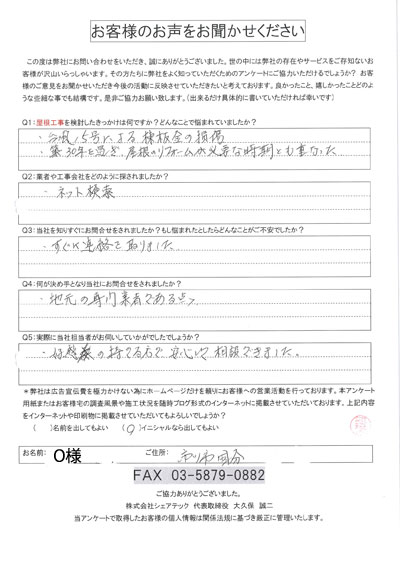 お客様のお声をお聞かせください
この度は弊社にお問い合わせをいただき、誠にありがとうございました。世の中には弊社の存在やサービスをご存知ないお
客様が沢山いらっしゃいます。その方たちに弊社をよく知っていただくためのアンケートにご協力いただけるでしょうか? お客
様のご意見をお聞かせいただき今後の活動に反映させていただきたいと考えております。良かったこと、嬉しかったことどのよ
うな些細な事でも結構です。是非ご協力お願い致します。(出来るだけ具体的に書いていただければ幸いです)
Q1:屋根工事を検討したきっかけは何ですか?どんなことで悩まれていましたか?
・台風15号による棟板金の損傷
・築30年を過ぎ、屋根のリフォームが必要な時期とも重なった
Q2:業者や工事会社をどのように探されましたか?
・ネット検索
Q3:当社を知りすぐにお問合せをされましたか?もし悩まれたとしたらどんなことがご不安でしたか?
・すぐに連絡を取りました
Q4:何が決め手となり当社にお問合せをされましたか?
・地元の専門業者である点
Q5:実際に当社担当者がお伺いしていかがでしたでしょうか?
・好感の持てる方で安心して相談できました。
*弊社は広告宣伝費を極力かけない為にホームページだけを頼りにお客様への営業活動を行っております。本アンケート
用紙またはお客様宅の調査風景や施工状況を随時ブログ形式のインターネットに掲載させていただいております。上記内容
をインターネットや印刷物に掲載させていただいてもよろしいでしょうか?
( )名前を出してもよい (○)イニシャルなら出してもよい
お名前: O様 ご住所:
FAX 03-5879-0882
ご協力ありがとうございました。
株式会社シェアテック 代表取締役 大久保 誠二
当アンケートで取得したお客様の個人情報は関係法規に基づき厳正に管理いたします。